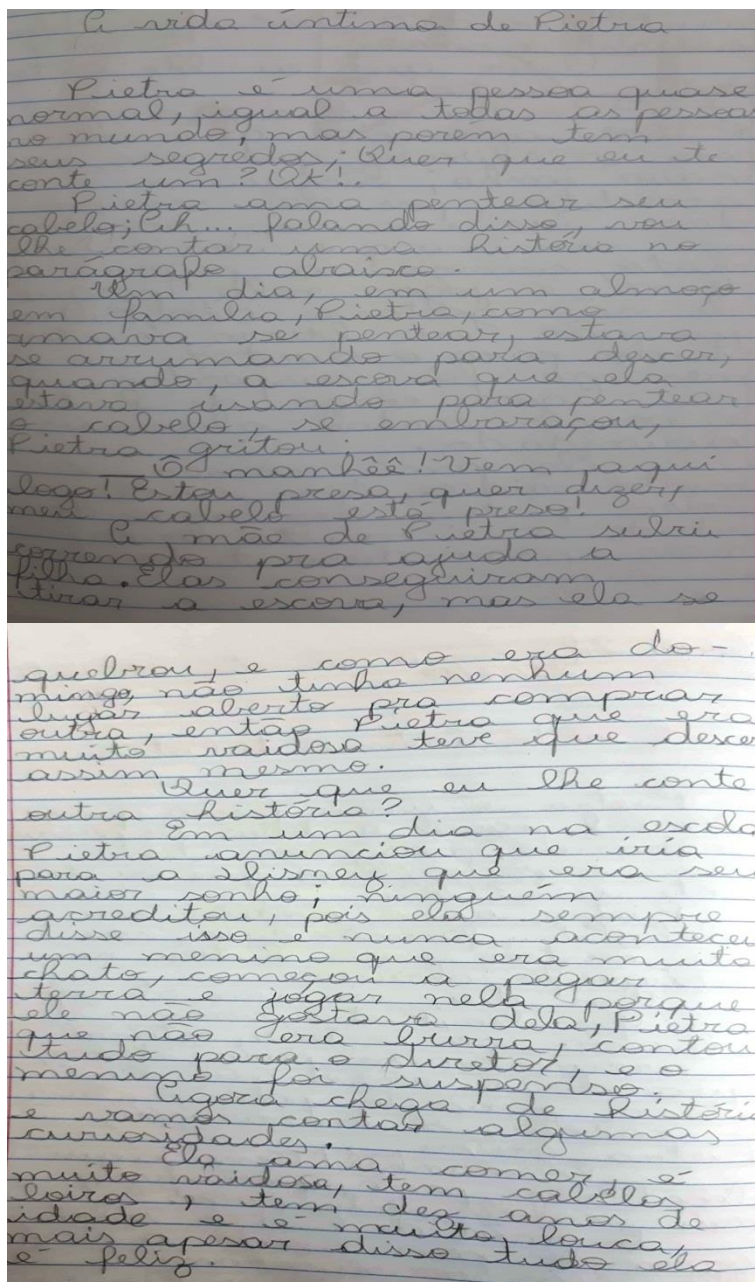 A vida íntima de Pietra
Pietra é uma pessoa quase
normal, igual a todas as pessoa
no mundo, mas porém tem
seus segredos; Quer que eu te
conte um? Ok!.
Pietra ama pentear seu
cabelo; Ah... falando disso, vou
lhe contar uma história no
parágrafo abaixo.
Um dia, em um almoço
em família, Pietra, como
amava se pentear, estava
se arrumando para descer,
quando, a escova que ela
estava usando para pentear
o cabelo, se embaraçou,
Pietra gritou:
_Ô manhêê! Vem aqui
logo! Estou presa, quer dizer,
meu cabelo está preso!
A mãe de Pietra subiu
correndo pra ajuda a
filha. Elas conseguiram
tirar a escova, mas ela se
quebrou, e como era do-
mingo, não tinha nenhum
lugar aberto pra comprar
outra, então Pietra que era
muito vaidosa teve que descer
assim mesmo.
Quer que eu lhe conte
outra história?
Em um dia na escola
Pietra anunciou que iria
para a Disney que era seu
maior sonho; ninguém
acreditou, pois ela sempre
disse isso e nunca aconteceu
um menino que era muito
chato, começou a pegar
terra e jogar nela porque
ele não gostava dela, Pietra
que não era burra, contou
tudo para o diretor, e o
menino foi suspenso.
Agora chega de históri
e vamos contar algumas
curiosidades.
Ela ama comer, é
muito vaidosa, tem cabelos
loiros, tem dez anos de
idade e é muito louca,
mais apesar disso tudo ela
é feliz.